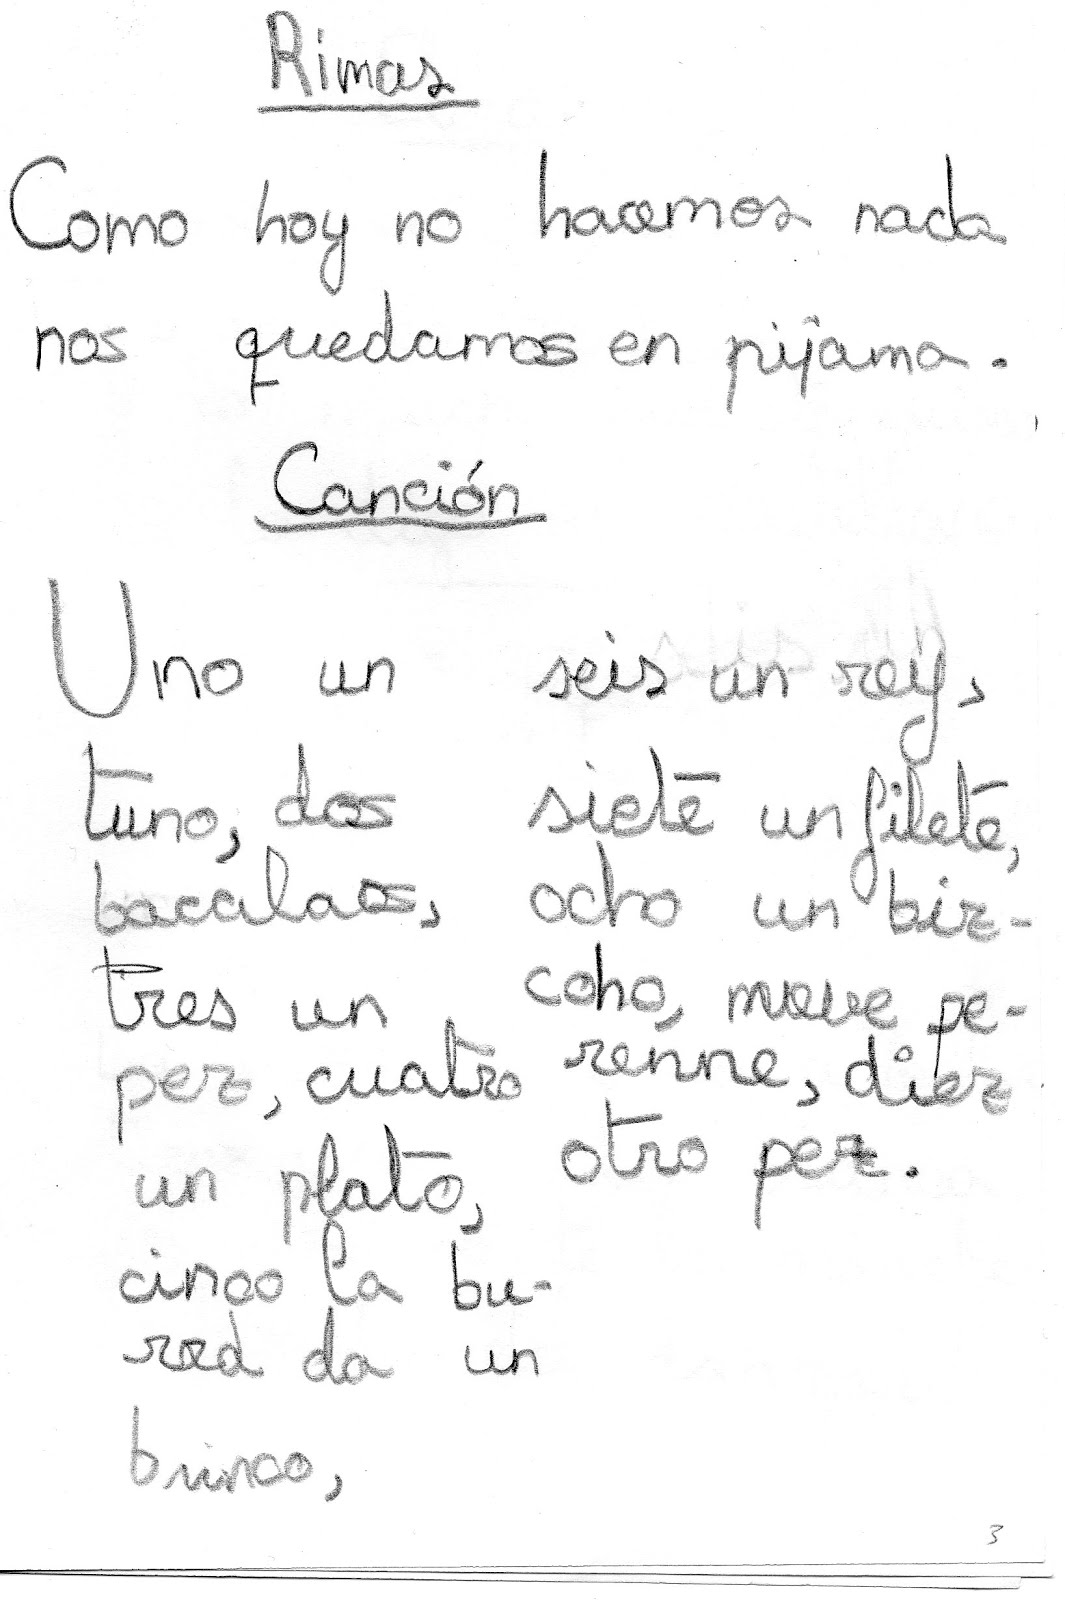 Rimas
Como hoy no hacemos nada
nos quedamos en pijama.
Canción
Uno un
tuno, dos
bacalaos,
tres un
pez, cuatro
un plato,
cinco la bu-
red da un
brinco,
seis un rey,
siete un filete,
ocho un biz-
coho, nueve pe-
renne, diez
otro pez.
3